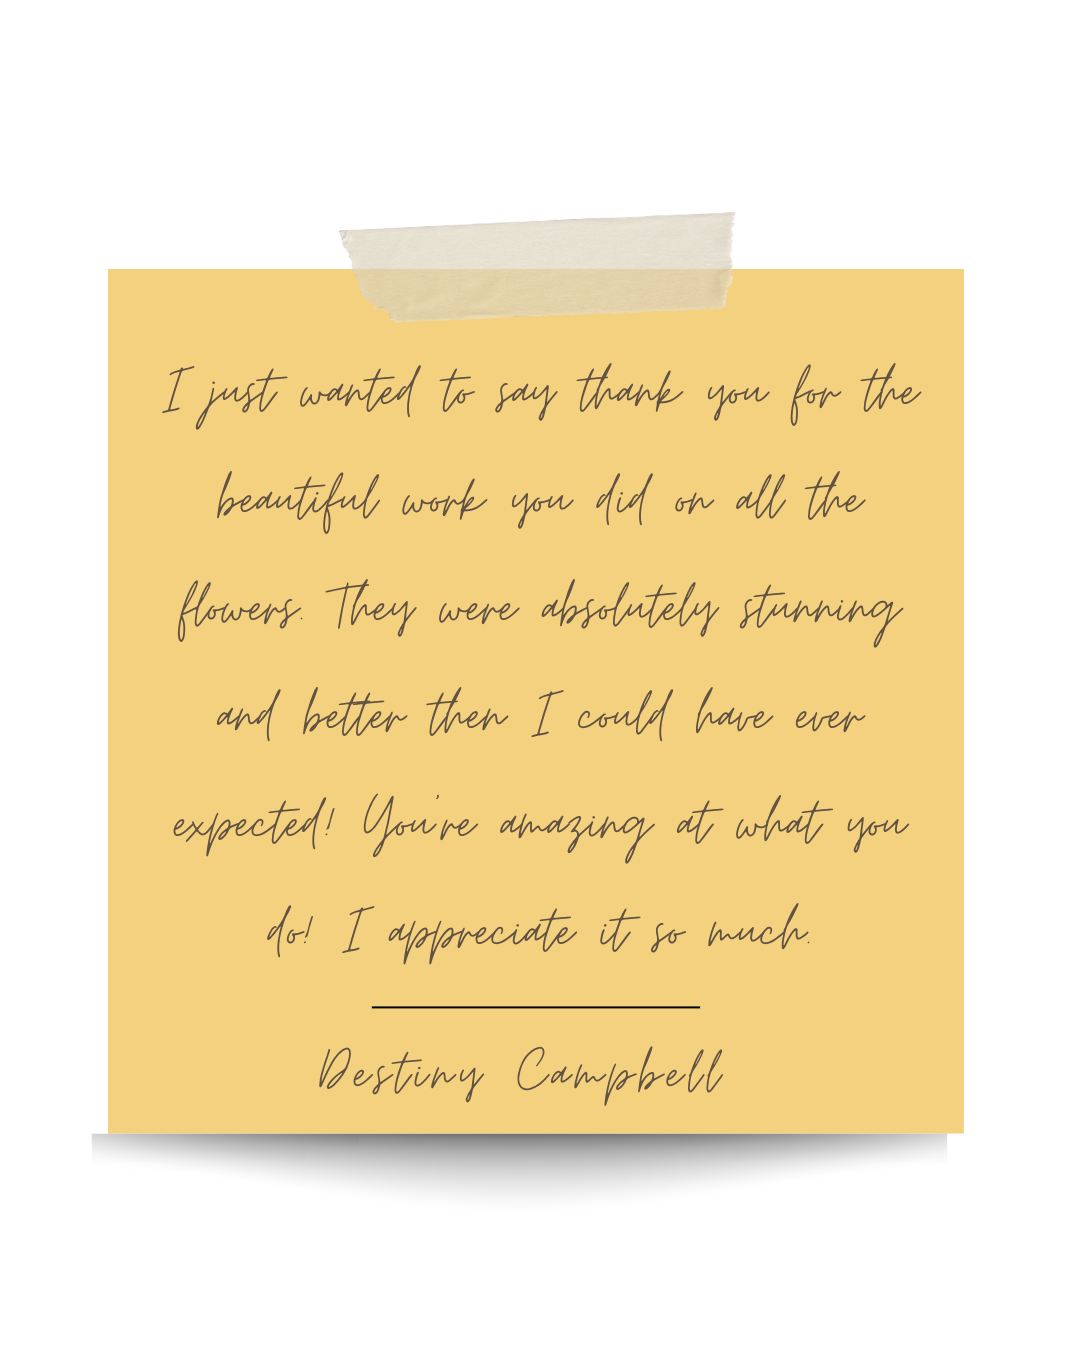 I just wanted to say thank you for the
beautiful work you did on all the
flowers. They were absolutely stunning
and better then I could have ever
expected! You're amazing at what you
do! I appreciate it so much.
Destiny Campbell